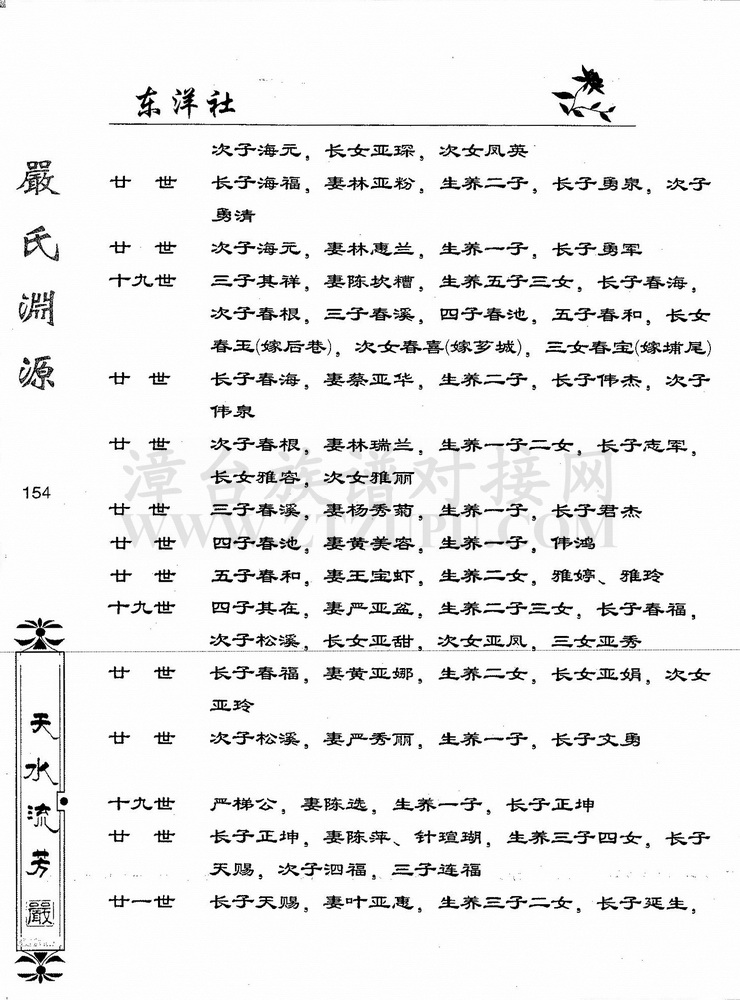 东洋社
嚴氏淵源
154
天水流芳
嚴
次子海元，长女亚琛，次女凤英
廿世 长子海福，妻林亚粉，生养二子，长子勇泉，次子
勇清
廿世 次子海元，妻林惠兰，生养一子，长子勇军
十九世 三子其祥，妻陈坎糟，生养五子三女，长子春海，
次子春根，三子春溪，四子春池，五子春和，长女
春玉(嫁后巷)，次女春喜(嫁芗城)，三女春宝(嫁埔尾)
廿世 长子春海，妻蔡亚华，生养二子，长子伟杰，次子
伟泉
廿世 次子春根，妻林瑞兰，生养一子二女，长子志军，
长女雅容，次女雅丽
廿世 三子春溪，妻杨秀菊，生养一子，长子君杰
廿世 四子春池，妻黄美容，生养一子，伟鸿
廿世 五子春和，妻王宝虾，生养二女，雅婷、雅玲
十九世 四子其在，妻严亚盆，生养二子三女，长子春福，
次子松溪，长女亚甜，次女亚凤，三女亚秀
廿世 长子春福，妻黄亚娜，生养二女，长女亚娟，次女
亚玲
廿世 次子松溪，妻严秀丽，生养一子，长子文勇
十九世 严梯公，妻陈选，生养一子，长子正坤
廿世 长子正坤，妻陈萍、针瑄瑚，生养三子四女，长子
天赐，次子泗福，三子连福
廿一世 长子天赐，妻叶亚惠，生养三子二女，长子延生，
漳台族谱对接网
WWW.ZTZUPU.COM